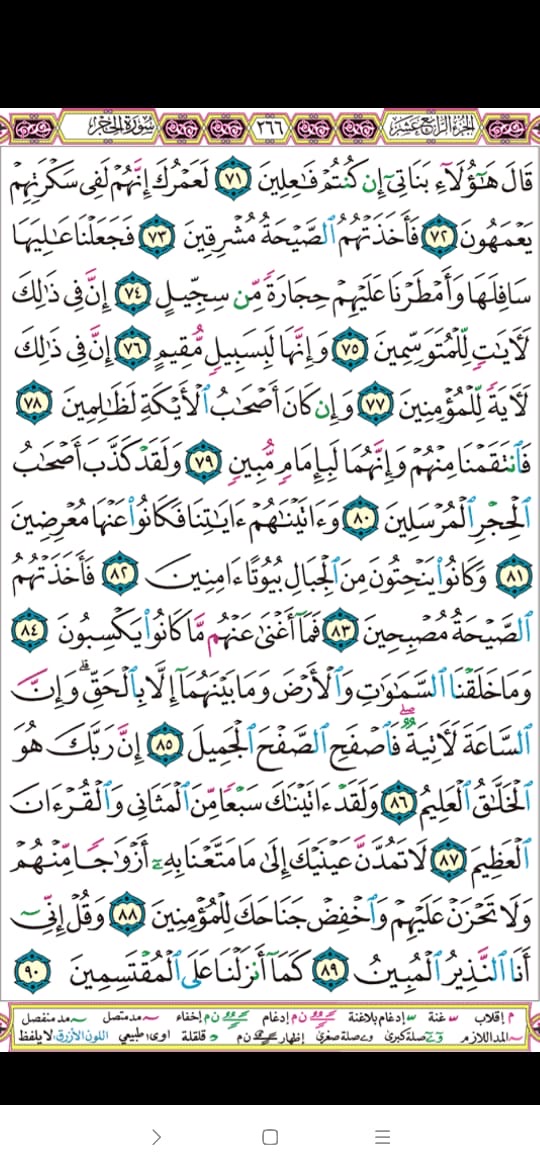 الجزء الرابع عشر ٢٦٦ سورة الحجر
قَالَ هَٰٓؤُلَآءِ بَنَاتِىٓ إِن كُنتُمْ فَٰعِلِينَ ٧١ لَعَمْرُكَ إِنَّهُمْ لَفِى سَكْرَتِهِمْ
يَعْمَهُونَ ٧٢ فَأَخَذَتْهُمُ ٱلصَّيْحَةُ مُشْرِقِينَ ٧٣ فَجَعَلْنَا عَٰلِيَهَا
سَافِلَهَا وَأَمْطَرْنَا عَلَيْهِمْ حِجَارَةً مِّن سِجِّيلٍ ٧٤ إِنَّ فِى ذَٰلِكَ
لَءَايَٰتٍ لِّلْمُتَوَسِّمِينَ ٧٥ وَإِنَّهَا لَبِسَبِيلٍ مُّقِيمٍ ٧٦ إِنَّ فِى ذَٰلِكَ
لَءَايَةً لِّلْمُؤْمِنِينَ ٧٧ وَإِن كَانَ أَصْحَٰبُ ٱلْأَيْكَةِ لَظَٰلِمِينَ ٧٨
فَٱنتَقَمْنَا مِنْهُمْ وَإِنَّهُمَا لَبِإِمَامٍ مُّبِينٍ ٧٩ وَلَقَدْ كَذَّبَ أَصْحَٰبُ
ٱلْحِجْرِ ٱلْمُرْسَلِينَ ٨٠ وَءَاتَيْنَٰهُمْ ءَايَٰتِنَا فَكَانُوا۟ عَنْهَا مُعْرِضِينَ
٨١ وَكَانُوا۟ يَنْحِتُونَ مِنَ ٱلْجِبَالِ بُيُوتًا ءَامِنِينَ ٨٢ فَأَخَذَتْهُمُ
ٱلصَّيْحَةُ مُصْبِحِينَ ٨٣ فَمَآ أَغْنَىٰ عَنْهُم مَّا كَانُوا۟ يَكْسِبُونَ ٨٤
وَمَا خَلَقْنَا ٱلسَّمَٰوَٰتِ وَٱلْأَرْضَ وَمَا بَيْنَهُمَآ إِلَّا بِٱلْحَقِّ ۗ وَإِنَّ
ٱلسَّاعَةَ لَءَاتِيَةٌ ۖ فَٱصْفَحِ ٱلصَّفْحَ ٱلْجَمِيلَ ٨٥ إِنَّ رَبَّكَ هُوَ
ٱلْخَلَّٰقُ ٱلْعَلِيمُ ٨٦ وَلَقَدْ ءَاتَيْنَٰكَ سَبْعًا مِّنَ ٱلْمَثَانِى وَٱلْقُرْءَانَ
ٱلْعَظِيمَ ٨٧ لَا تَمُدَّنَّ عَيْنَيْكَ إِلَىٰ مَا مَتَّعْنَا بِهِۦٓ أَزْوَٰجًا مِّنْهُمْ
وَلَا تَحْزَنْ عَلَيْهِمْ وَٱخْفِضْ جَنَاحَكَ لِلْمُؤْمِنِينَ ٨٨ وَقُلْ إِنِّىٓ
أَنَا ٱلنَّذِيرُ ٱلْمُبِينُ ٨٩ كَمَآ أَنزَلْنَا عَلَى ٱلْمُقْتَسِمِينَ ٩٠
م إقلاب غنة إدغام بلاغنة ن م إدغام ن م إخفاء مد متصل مد منفصل
المد اللازم صلة كبرى صلة صغرى إظهار ن م قلقلة اوى طبيعي اللون الأزرق لا يلفظ